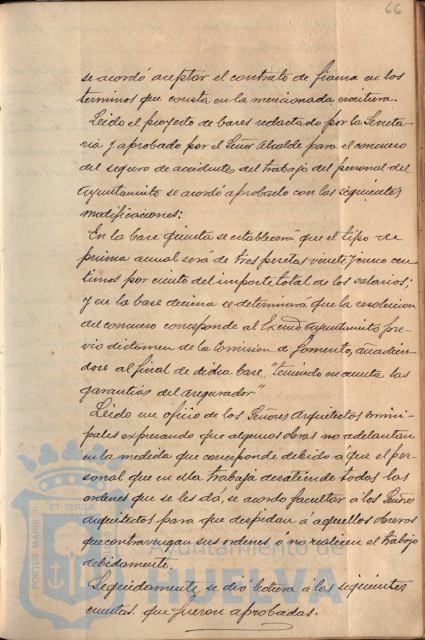 66
se acordó aceptar el contrato de fianza en los
terminos que consta en la mencionada escritura.
Leido el proyecto de bases redactado por la Secreta
ria y aprobado por el Señor Alcalde para el concurso
del seguro de accidentes del trabajo del personal del
Ayuntamiento se acordó aprobarlo con las siguientes
modificaciones:
En la base quinta se establecerá que el tipo de
prima anual será de tres pesetas veinte y cinco cen
timos por ciento del importe total de los salarios;
y en la base decima se determinará que la resolucion
del concurso corresponde al Excmo Ayuntamiento pre
vio dictamen de la Comision de Fomento, añadien
dose al final de dicha base, "teniendo en cuenta las
garantias del asegurador"
Leido un oficio de los Señores Arquitectos muni
pales expresando que algunas obras no adelantan
en la medida que corresponde debido a que el per
sonal que en ella trabaja desatiende todas las
ordenes que se les da, se acordó facultar á los Señores
Arquitectos para que despidan á aquellos obreros
que contravengan sus ordenes ó no realicen el trabajo
debidamente.
Seguidamente se dió lectura á las siguientes
cuentas que fueron aprobadas.
PORTUS MARIS ET TERRAE
Ayuntamiento de
HUELVA